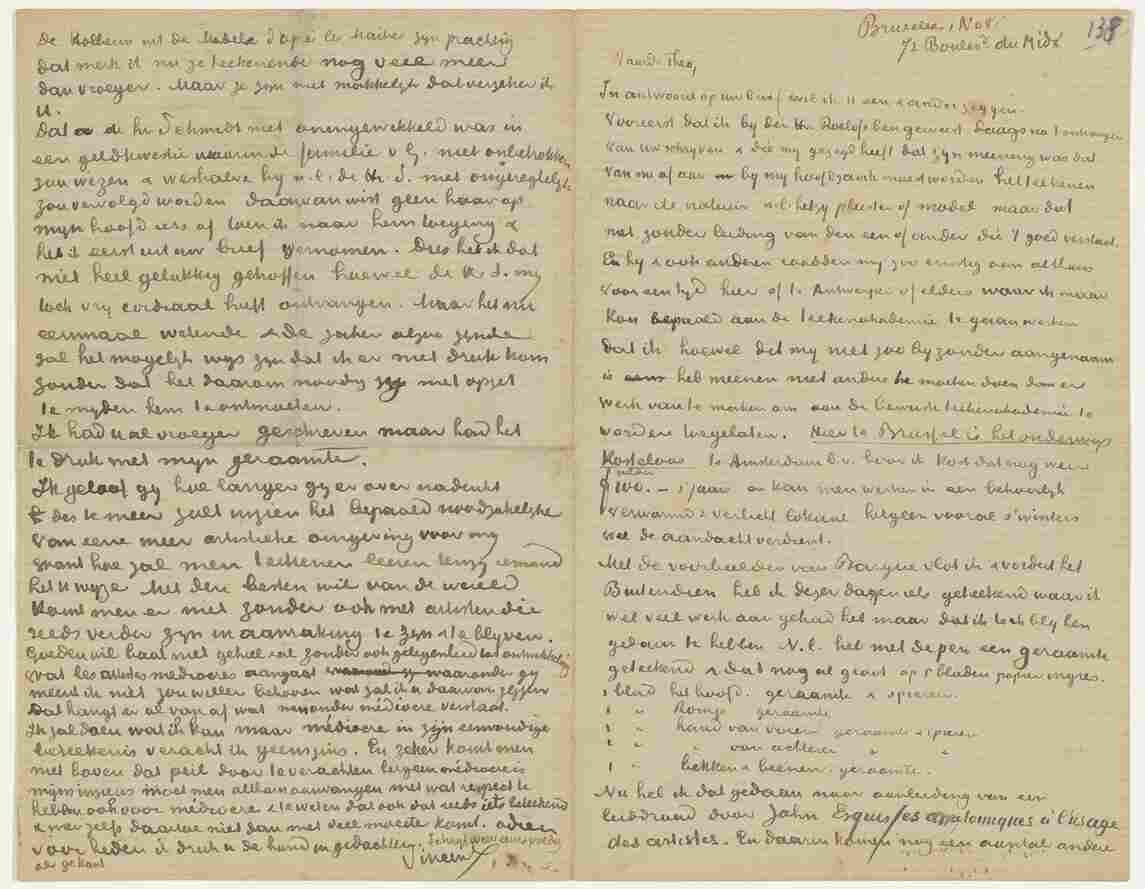 De Holbeins uit de Modèles d'après les Maitres zyn prachtig
dat merk ik nu ze teekenende nog veel meer
dan vroeger. Maar ze zyn niet makkelyk dat verzeker ik
U.
Dat de hr Schmidt met ongewikkeld was in
een geldkwestie waarin de familie v G. niet onbetrokken
zou wezen & weshalve hy n.l. de Hr S. met ongeregeldh
zou vervolgd worden daarvan wist geen haar op
myn hoofd iets af toen ik naar hem toeging &
heb ik eerst uit uw brief vernomen. Dus heb ik dat
niet heel gelukkig getroffen hoewel de Hr S. my
toch vry cordiaal heeft ontvangen. Maar het nu
eenmaal wetende & de zaken alzoo zynde
zal het mogelyk wys zyn dat ik er niet druk kom
zonder dat het daarom noodig zy met opzet
te myden hem te ontmoeten.
Ik had U al vroeger geschreven maar had het
te druk met myn geraamte.
Ik geloof gy hoe langer gy er over nadenkt
des te meer zult inzien het bepaald noodzakelyke
van eene meer artistieke omgeving voor my
want hoe zal men teekenen leeren tenzy iemand
het U wyze. Met den besten wil van de wereld
komt men er niet zonder ook met artisten die
reeds verder zyn in aanraking te zyn & te blyven.
Goeden wil baat niet geheel en al zonder ook gelegenheid tot ontwikkeling
Wat les artistes médiocres aangaat waaronder gy
meent ik niet zou willen behooren wat zal ik U daarvan zeggen
dat hangt er al van af wat men onder médiocre verstaat.
Ik zal doen wat ik kan maar médiocre in zijn eenvoudige
beteekenis veracht ik geenszins. En zeker komt men
niet boven dat peil door te verachten hetgeen médiocre is
myns inziens moet men althans aanvangen met wat respect te
hebben ook voor médiocre & te weten dat ook dat reeds iets beteekend
& men zelfs daartoe niet dan met veel moeite komt. adieu
voor heden ik druk U de hand in gedachten. Schryf weer eens spoedig
als ge kunt Vincent
138
Brussel 1 Nov.
72 Boulevd du Midi
Waarde Theo,
In antwoord op uw brief wil ik U een & ander zeggen.
Vooreerst dat ik by den Hr Roelofs ben geweest daags na t ontvangen
van Uw schryven & die my gezegd heeft dat zyn meening was dat
van nu af aan by my hoofdzaak moest worden het teekenen
naar de natuur n.l. hetzy pleister of model maar dat
niet zonder leiding van den een of ander die 't goed verstaat.
En hy & ook anderen raadden my zoo ernstig aan althans
voor een tyd hier of te Antwerpen of elders waar ik maar
kon bepaald aan de teekenakademie te gaan werken
dat ik hoewel dit my niet zoo byzonder aangenaam
is heb meenen niet anders te moeten doen dan er
werk van te maken om aan de bewuste teekenakademie te
worden toegelaten. Hier te Brussel is het onderwys
kosteloos te Amsterdam b.v. hoor ik kost dat nog weer
gulden
100.- s' jaars en kan men werken in een behoorlyk
verwarmd & verlicht lokaal hetgeen vooral s' winters
wel de aandacht verdient.
Met de voorbeelden van Bargue vlot ik & vordert het
Buitendien heb ik dezer dagen iets geteekend waar ik
wel veel werk aan gehad heb maar dat ik toch bly ben
gedaan te hebben N.l. heb met de pen een geraamte
geteekend & dat nog al groot op 5 bladen papier ingres.
1 blad het hoofd. geraamte & spieren.
1 " Romp geraamte
1 " hand van voren geraamte & spieren
1 " " van achteren " "
1 " bekken & beenen. geraamte.
Nu heb ik dat gedaan naar aanleiding van een
leidraad door John Esquisses anatomiques à l'usage
des artistes. En daarin komen nog een aantal andere